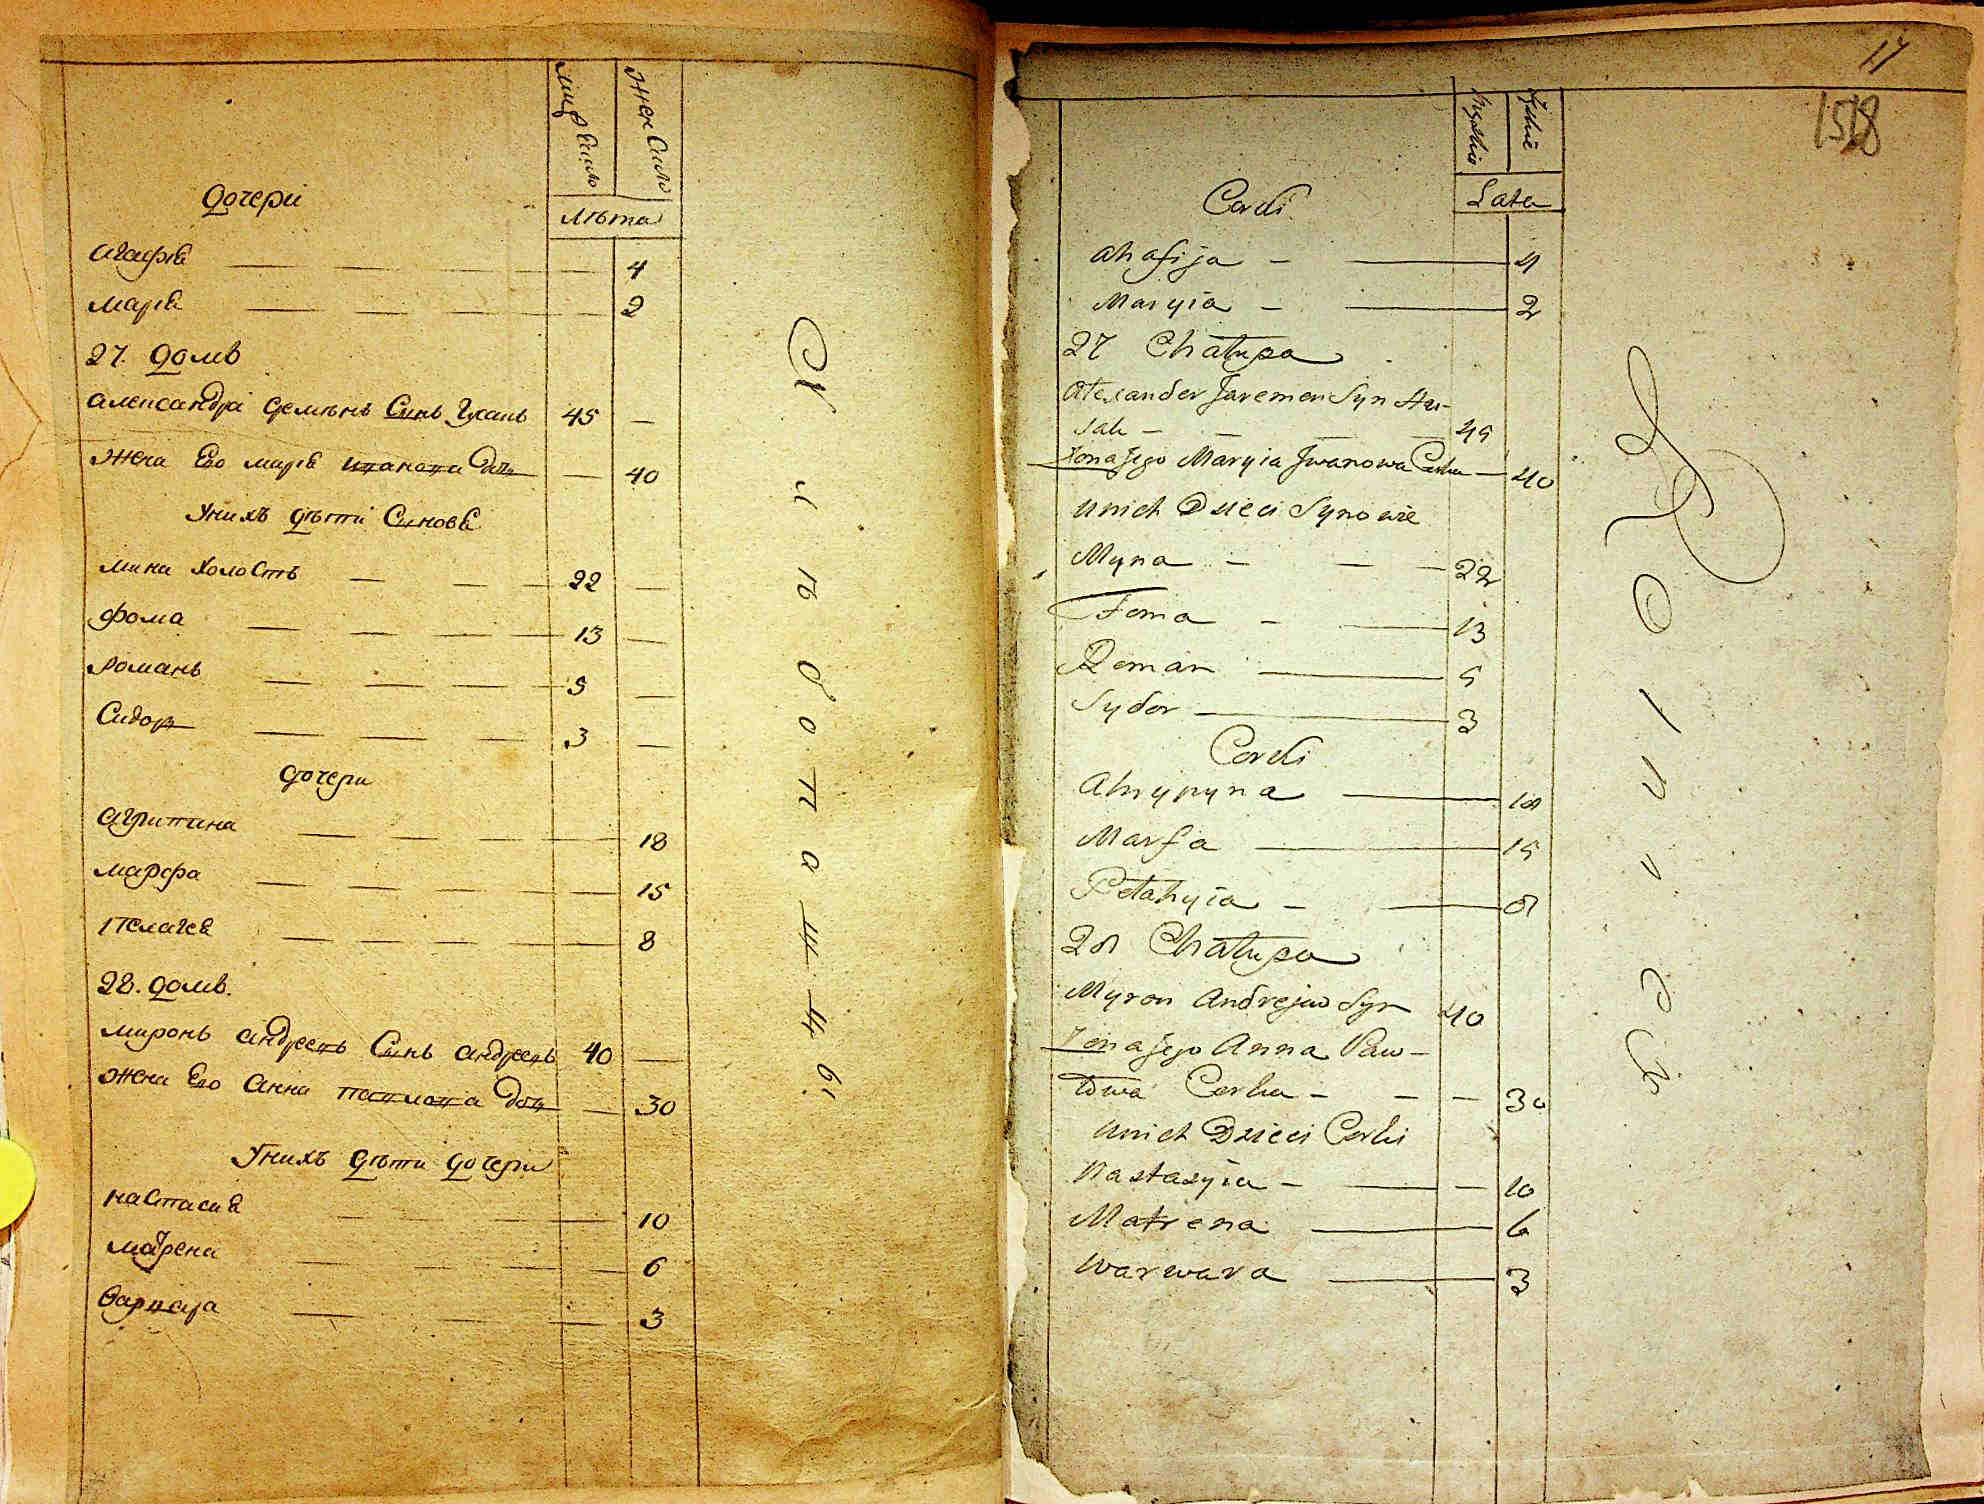 мужескъ
женскъ
Лѣта
дочери
агафiѣ 4
марiѣ 2
27. домъ
александрi Синъ 45 —
жена Его марiѣ дочь — 40
У нихъ дѣти Синовѣ
мина холостъ 22 —
фома 13 —
романъ 5 —
Сидор 3 —
дочери
агрипина 18
марфа 15
пелагеѣ 8
28. домъ.
миронъ андреевъ Синъ андреевъ 40 —
жена Его Анна павлова дочь — 30
У нихъ дѣти дочери
настасиѣ 10
мотрена 6
варвара 3
Хлѣбопашцъ.
17
1518
Męskie
Żeńskie
Lata
Corki
Ahafija — 4
Maryia — 2
27 Chałupa
Alexander Jaremen Syn Hu-
sak — 45
Żona Jego Maryia Jwanowa Corka — 40
U nich Dzieci Synowie
Myna — 22
Foma — 13
Roman — 5
Sydor — 3
Corki
Ahrypyna — 18
Marfa — 15
Pełahyia — 8
28 Chałupa
Myron Andrejuw Syn 40
Żona Jego Anna Paw-
łowa Corka — 30
U nich Dzieci Corki
Nastasyia — 10
Matrena — 6
Warwara — 3
Rolnicy